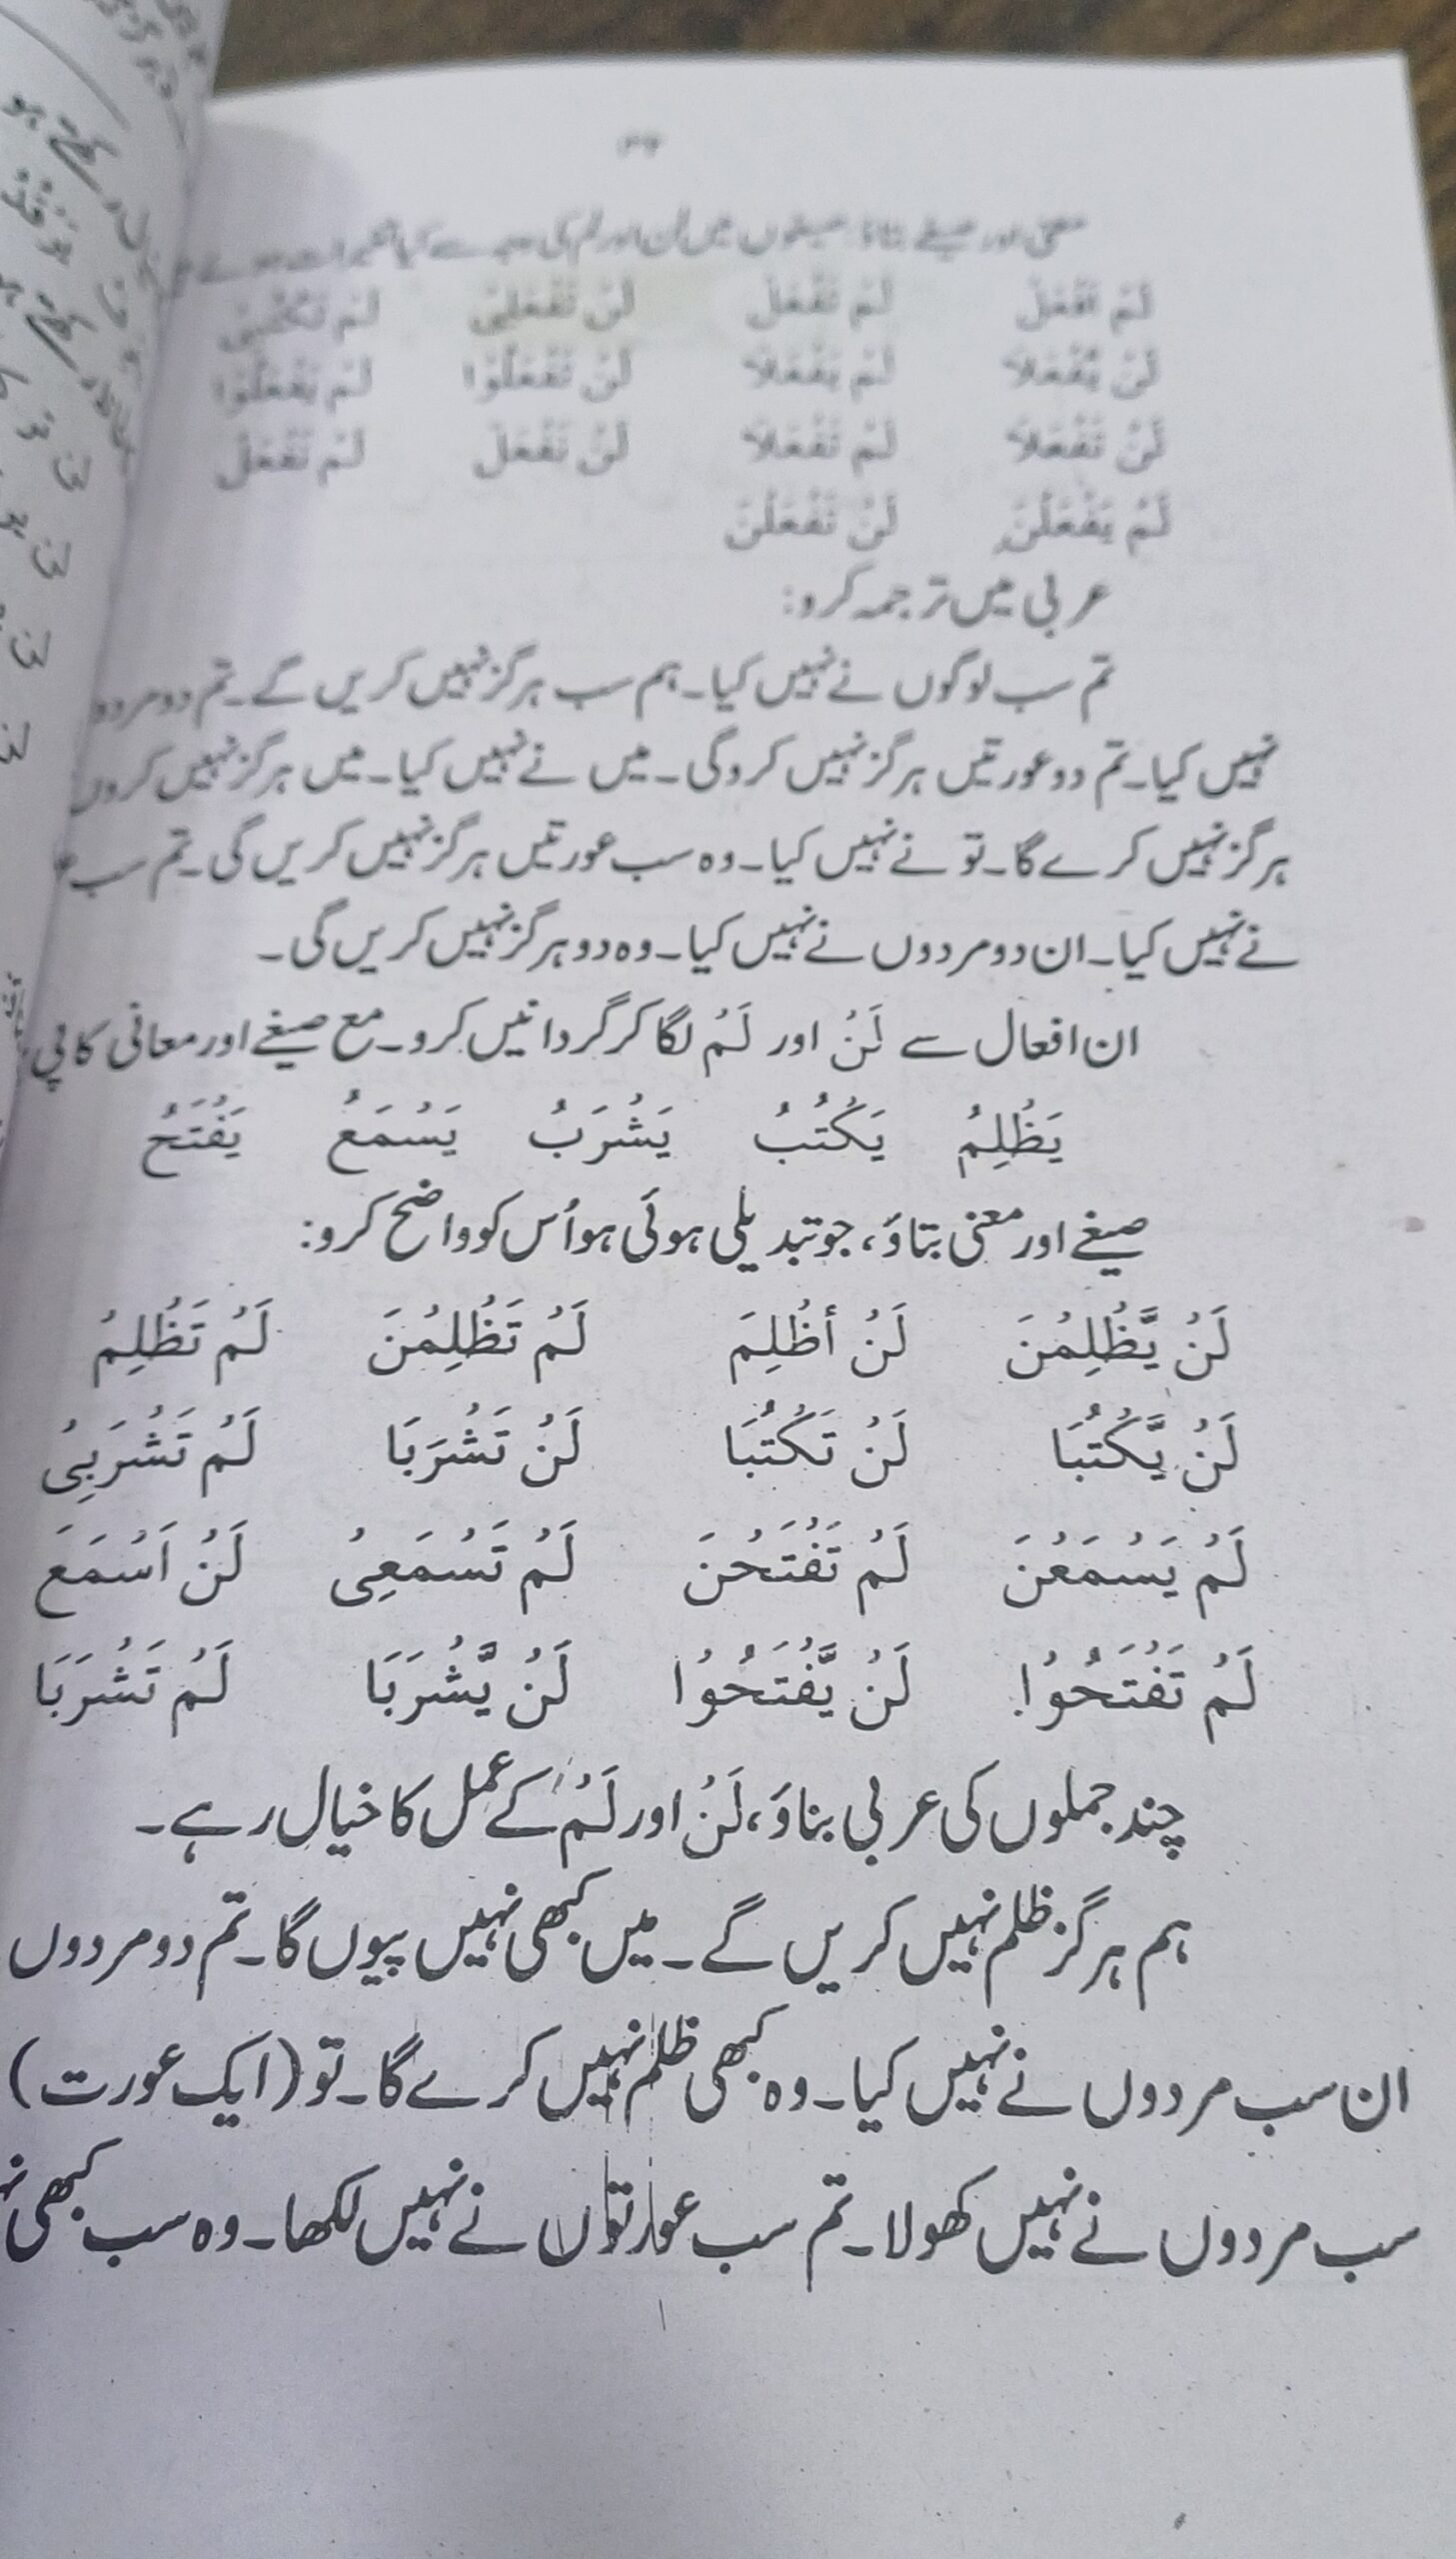 ۳۶
معنی اور صیغے بتاؤ، صیغوں میں لن اور لم کی وجہ سے کیا تغیرات ہوئے
لَمْ اَفْعَلْ لَمْ تَفْعَلْ لَنْ تَفْعَلِیْ
لَنْ یَّفْعَلَا لَمْ یَفْعَلَا لَنْ تَفْعَلُوْا لَمْ یَفْعَلُوْا
لَنْ تَفْعَلَا لَمْ تَفْعَلَا لَنْ تَفْعَلَ لَمْ تَفْعَلْ
لَمْ یَفْعَلْنَ لَنْ تَفْعَلْنَ
عربی میں ترجمہ کرو:
تم سب لوگوں نے نہیں کیا۔ ہم سب ہرگز نہیں کریں گے۔ تم دو مردو
نہیں کیا۔ تم دو عورتیں ہرگز نہیں کروگی۔ میں نے نہیں کیا۔ میں ہرگز نہیں کروں
ہرگز نہیں کرے گا۔ تو نے نہیں کیا۔ وہ سب عورتیں ہرگز نہیں کریں گی۔ تم سب
نے نہیں کیا۔ ان دو مردوں نے نہیں کیا۔ وہ دو ہرگز نہیں کریں گی۔
ان افعال سے لَنْ اور لَمْ لگا کر گردانیں کرو۔ مع صیغے اور معانی کاپی
یَظْلِمُ یَکْتُبُ یَشْرَبُ یَسْمَعُ یَفْتَحُ
صیغے اور معنی بتاؤ، جو تبدیلی ہوئی ہو اُس کو واضح کرو:
لَنْ یَّظْلِمْنَ لَنْ أظْلِمَ لَمْ تَظْلِمْنَ لَمْ تَظْلِمْ
لَنْ یَّکْتُبَا لَنْ تَکْتُبَا لَنْ تَشْرَبَا لَمْ تَشْرَبِیْ
لَمْ یَسْمَعْنَ لَمْ تَفْتَحْنَ لَمْ تَسْمَعِیْ لَنْ اَسْمَعَ
لَمْ تَفْتَحُوْا لَنْ یَّفْتَحُوْا لَنْ یَّشْرَبَا لَمْ تَشْرَبَا
چند جملوں کی عربی بناؤ، لَنْ اور لَمْ کے عمل کا خیال رہے۔
ہم ہرگز ظلم نہیں کریں گے۔ میں کبھی نہیں پیوں گا۔ تم دو مردوں
ان سب مردوں نے نہیں کیا۔ وہ کبھی ظلم نہیں کرے گا۔ تو (ایک عورت)
سب مردوں نے نہیں کھولا۔ تم سب عورتوں نے نہیں لکھا۔ وہ سب کبھی